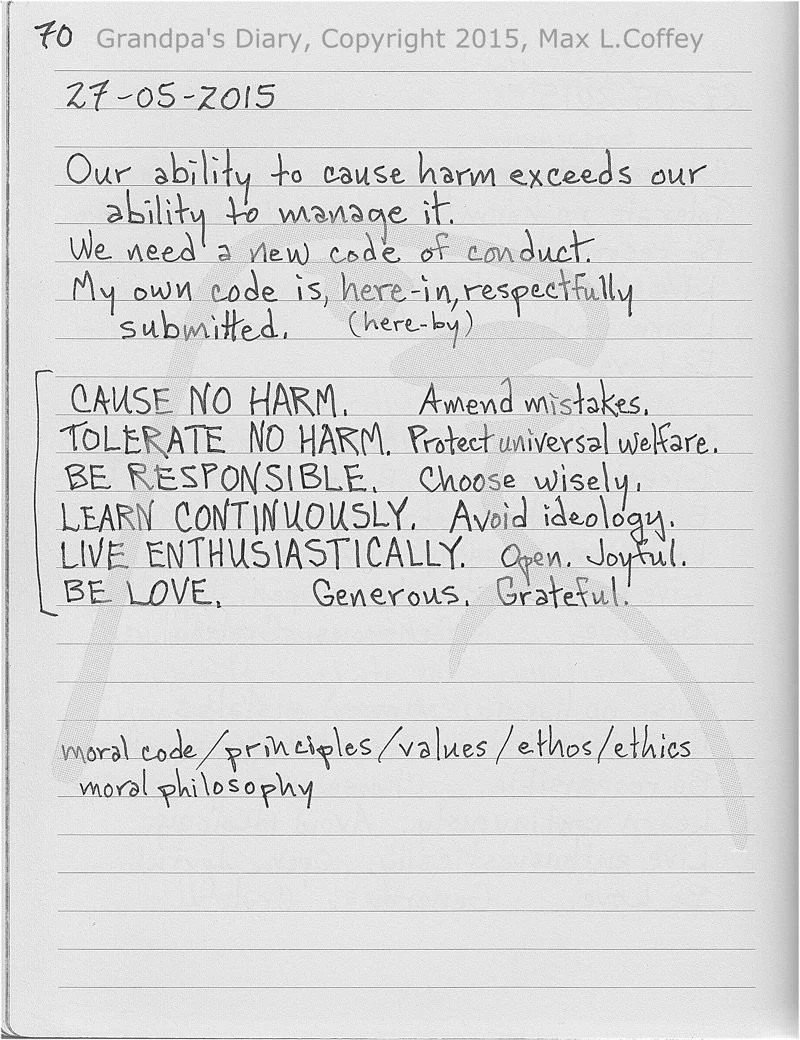 70 Grandpa's Diary, Copyright 2015, Max L.Coffey
27-05-2015
Our ability to cause harm exceeds our
ability to manage it.
We need a new code of conduct.
My own code is, here-in, respectfully
submitted. (here-by)
CAUSE NO HARM. Amend mistakes.
TOLERATE NO HARM. Protect universal welfare.
BE RESPONSIBLE. Choose wisely.
LEARN CONTINUOUSLY. Avoid ideology.
LIVE ENTHUSIASTICALLY. Open. Joyful.
BE LOVE. Generous. Grateful.
moral code/principles/values/ethos/ethics
moral philosophy